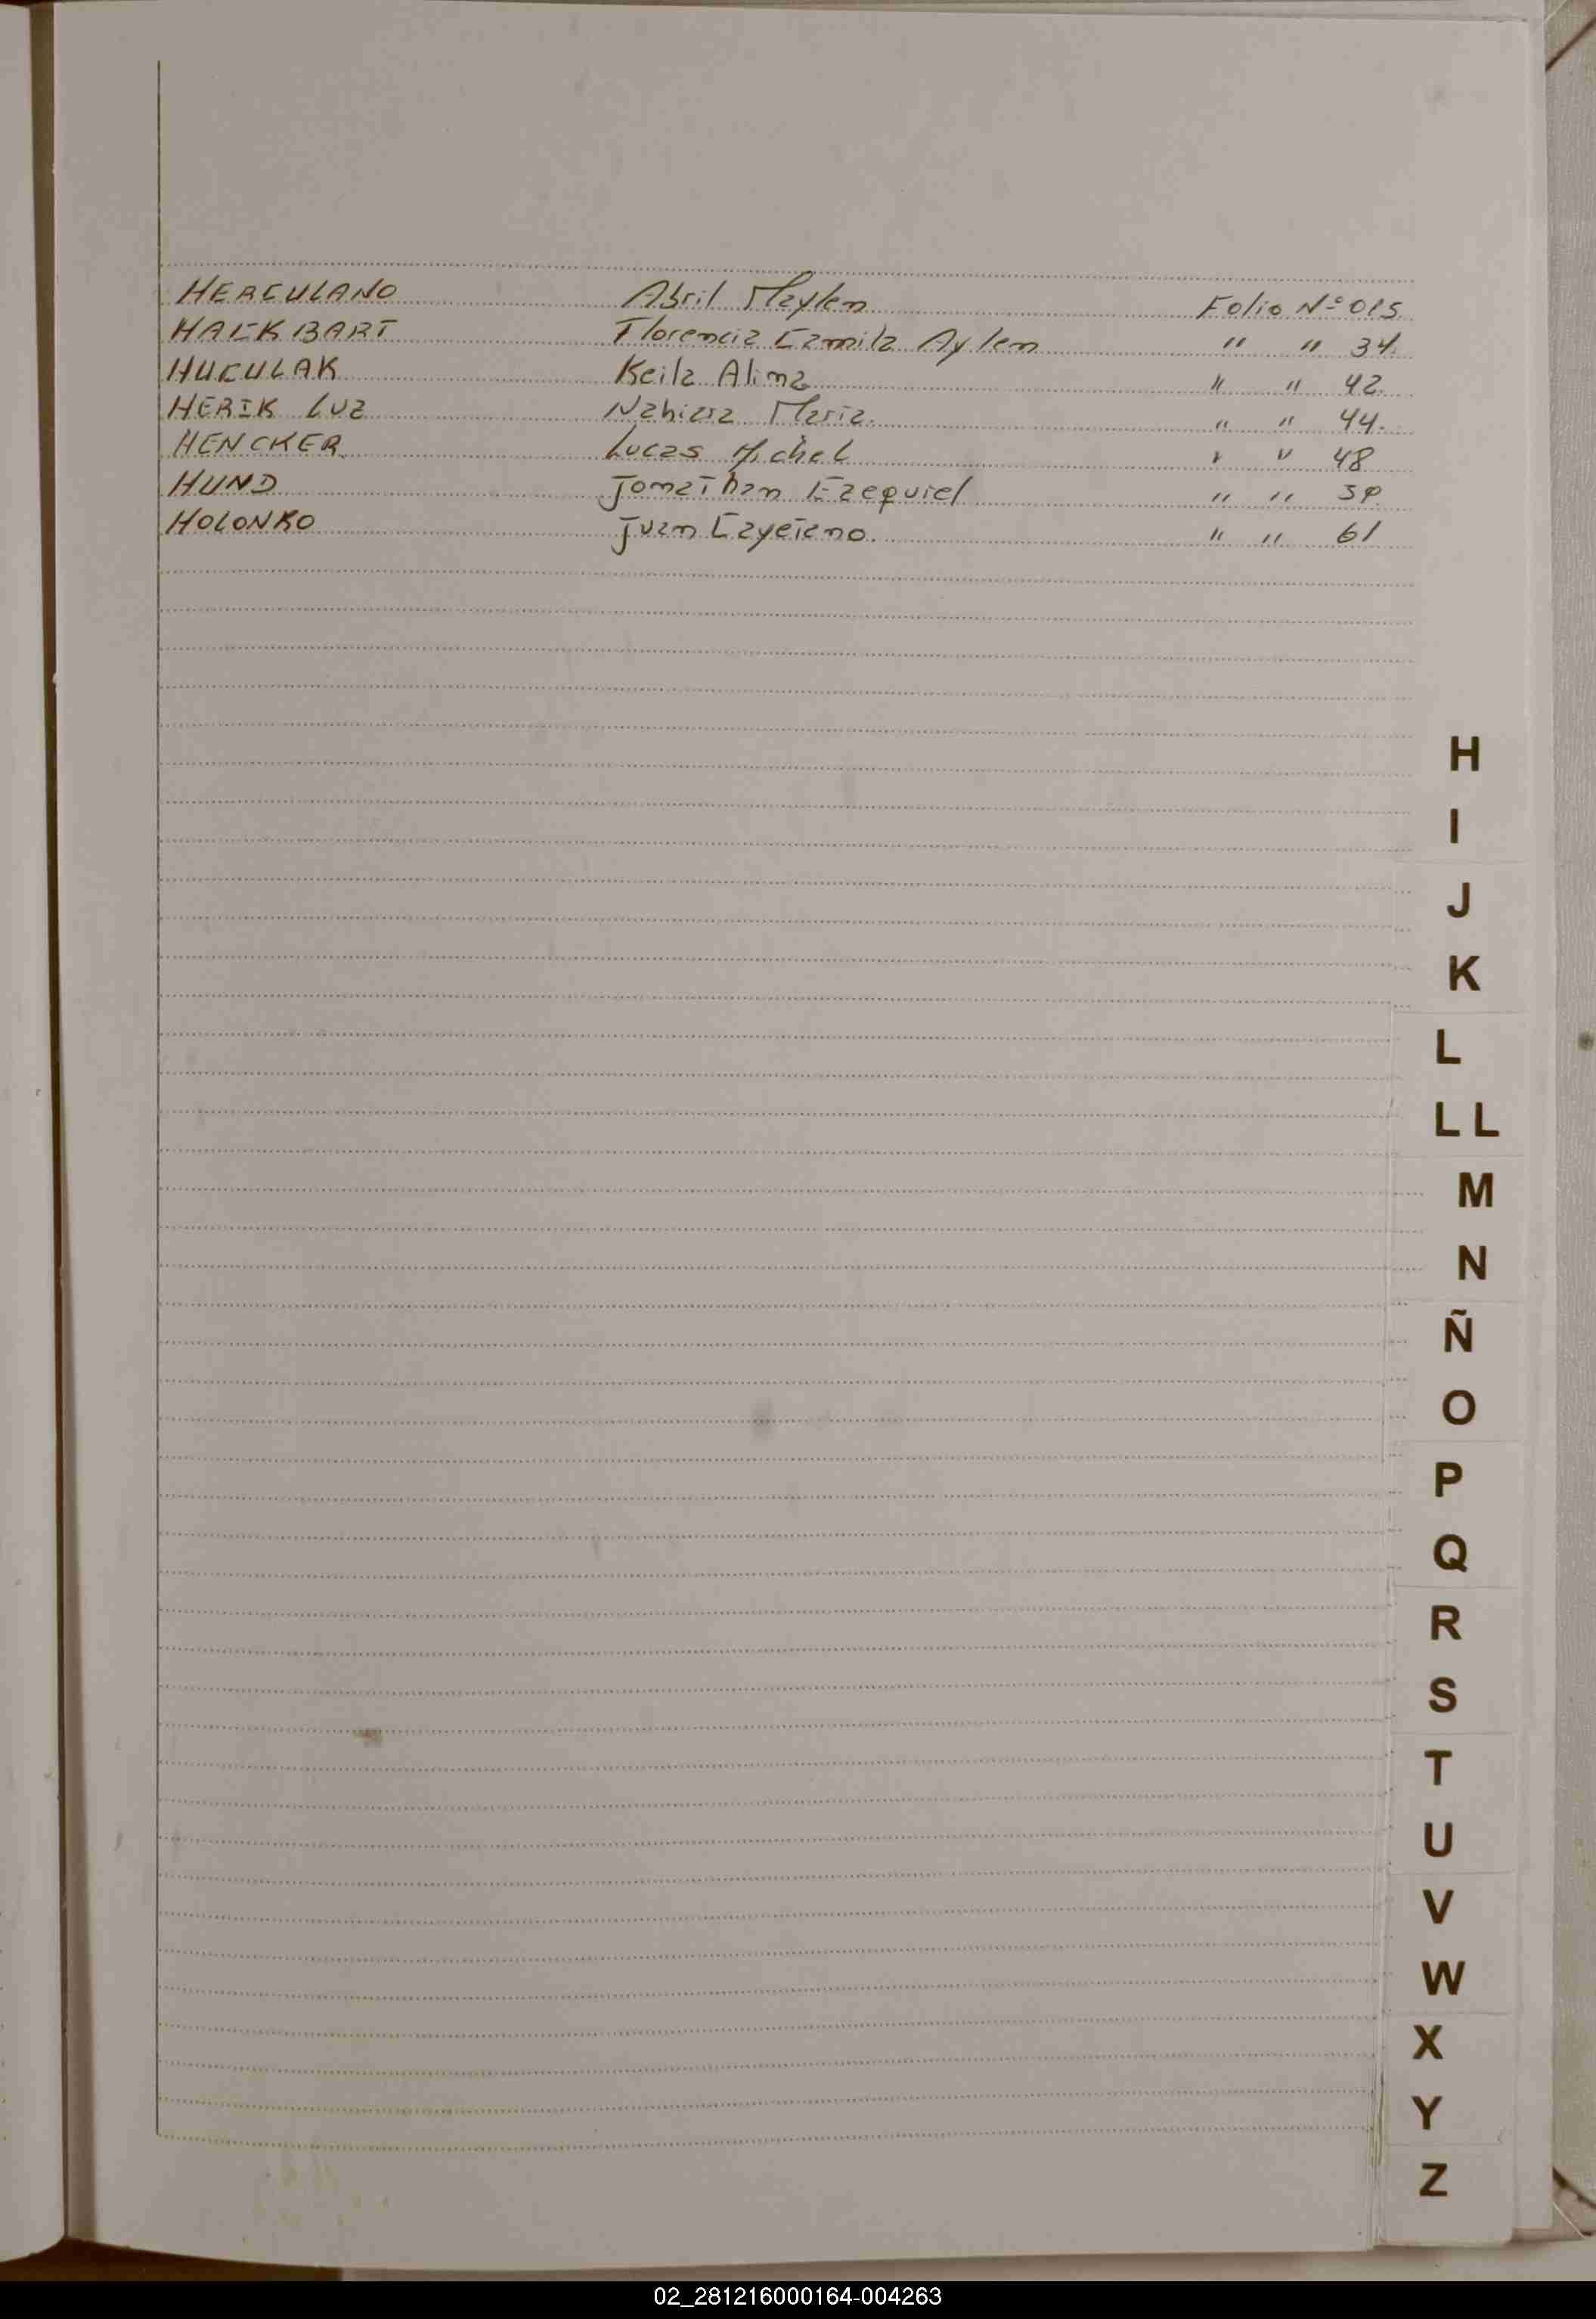 HERCULANO Abril Maylen Folio Nº 015
HACKBART Florencia Camila Aylen " " 34.
HUCULAK Keila Alina " " 42.
HERIK LUZ Nahiara Maria. " " 44.
HENCKER Lucas Michel " " 48
HUND Jonathan Ezequiel " "
HOLONKO Juan Cayetano. " " 61
H
I
J
K
L
LL
M
N
Ñ
O
P
Q
R
S
T
U
V
W
X
Y
Z
02_281216000164-004263